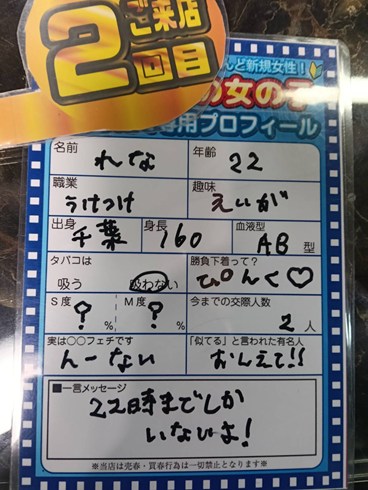 ご来店
2回目
んど新規女性！
の女の子
専用プロフィール
名前 れな 年齢 22
職業 うけつけ 趣味 えいが
出身 千葉 身長 160 血液型 AB 型
タバコは 吸う 吸わない
勝負下着って？ ぴんく♡
S度 ? % M度 ? %
今までの交際人数 2 人
実は○○フェチです んーない
「似てる」と言われた有名人 おしえて!!
■一言メッセージ
22時までしか
いないよ!
※当店は売春・買春行為は一切禁止となります※